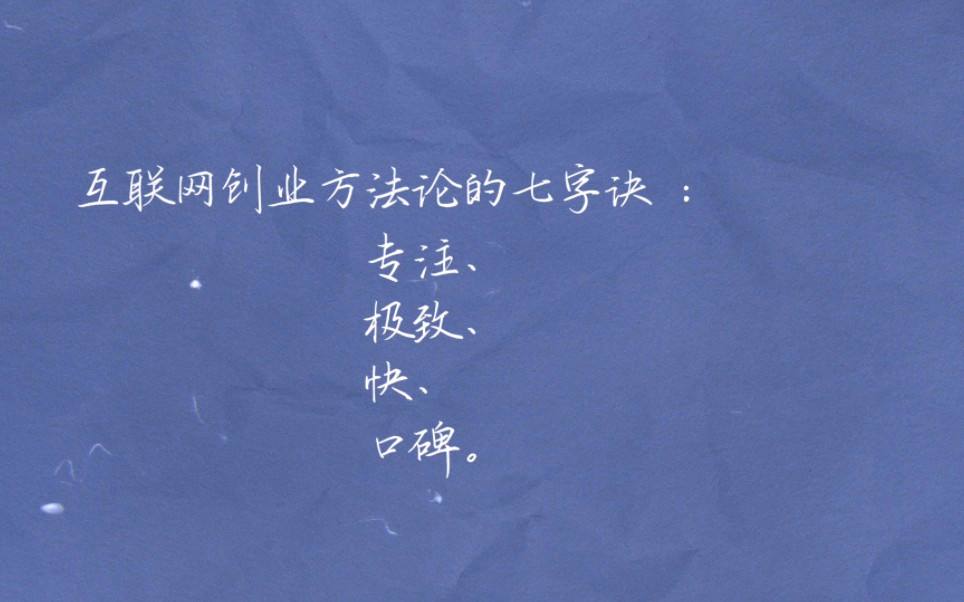 互联网创业方法论的七字诀 ：
专注、
极致、
快、
口碑。